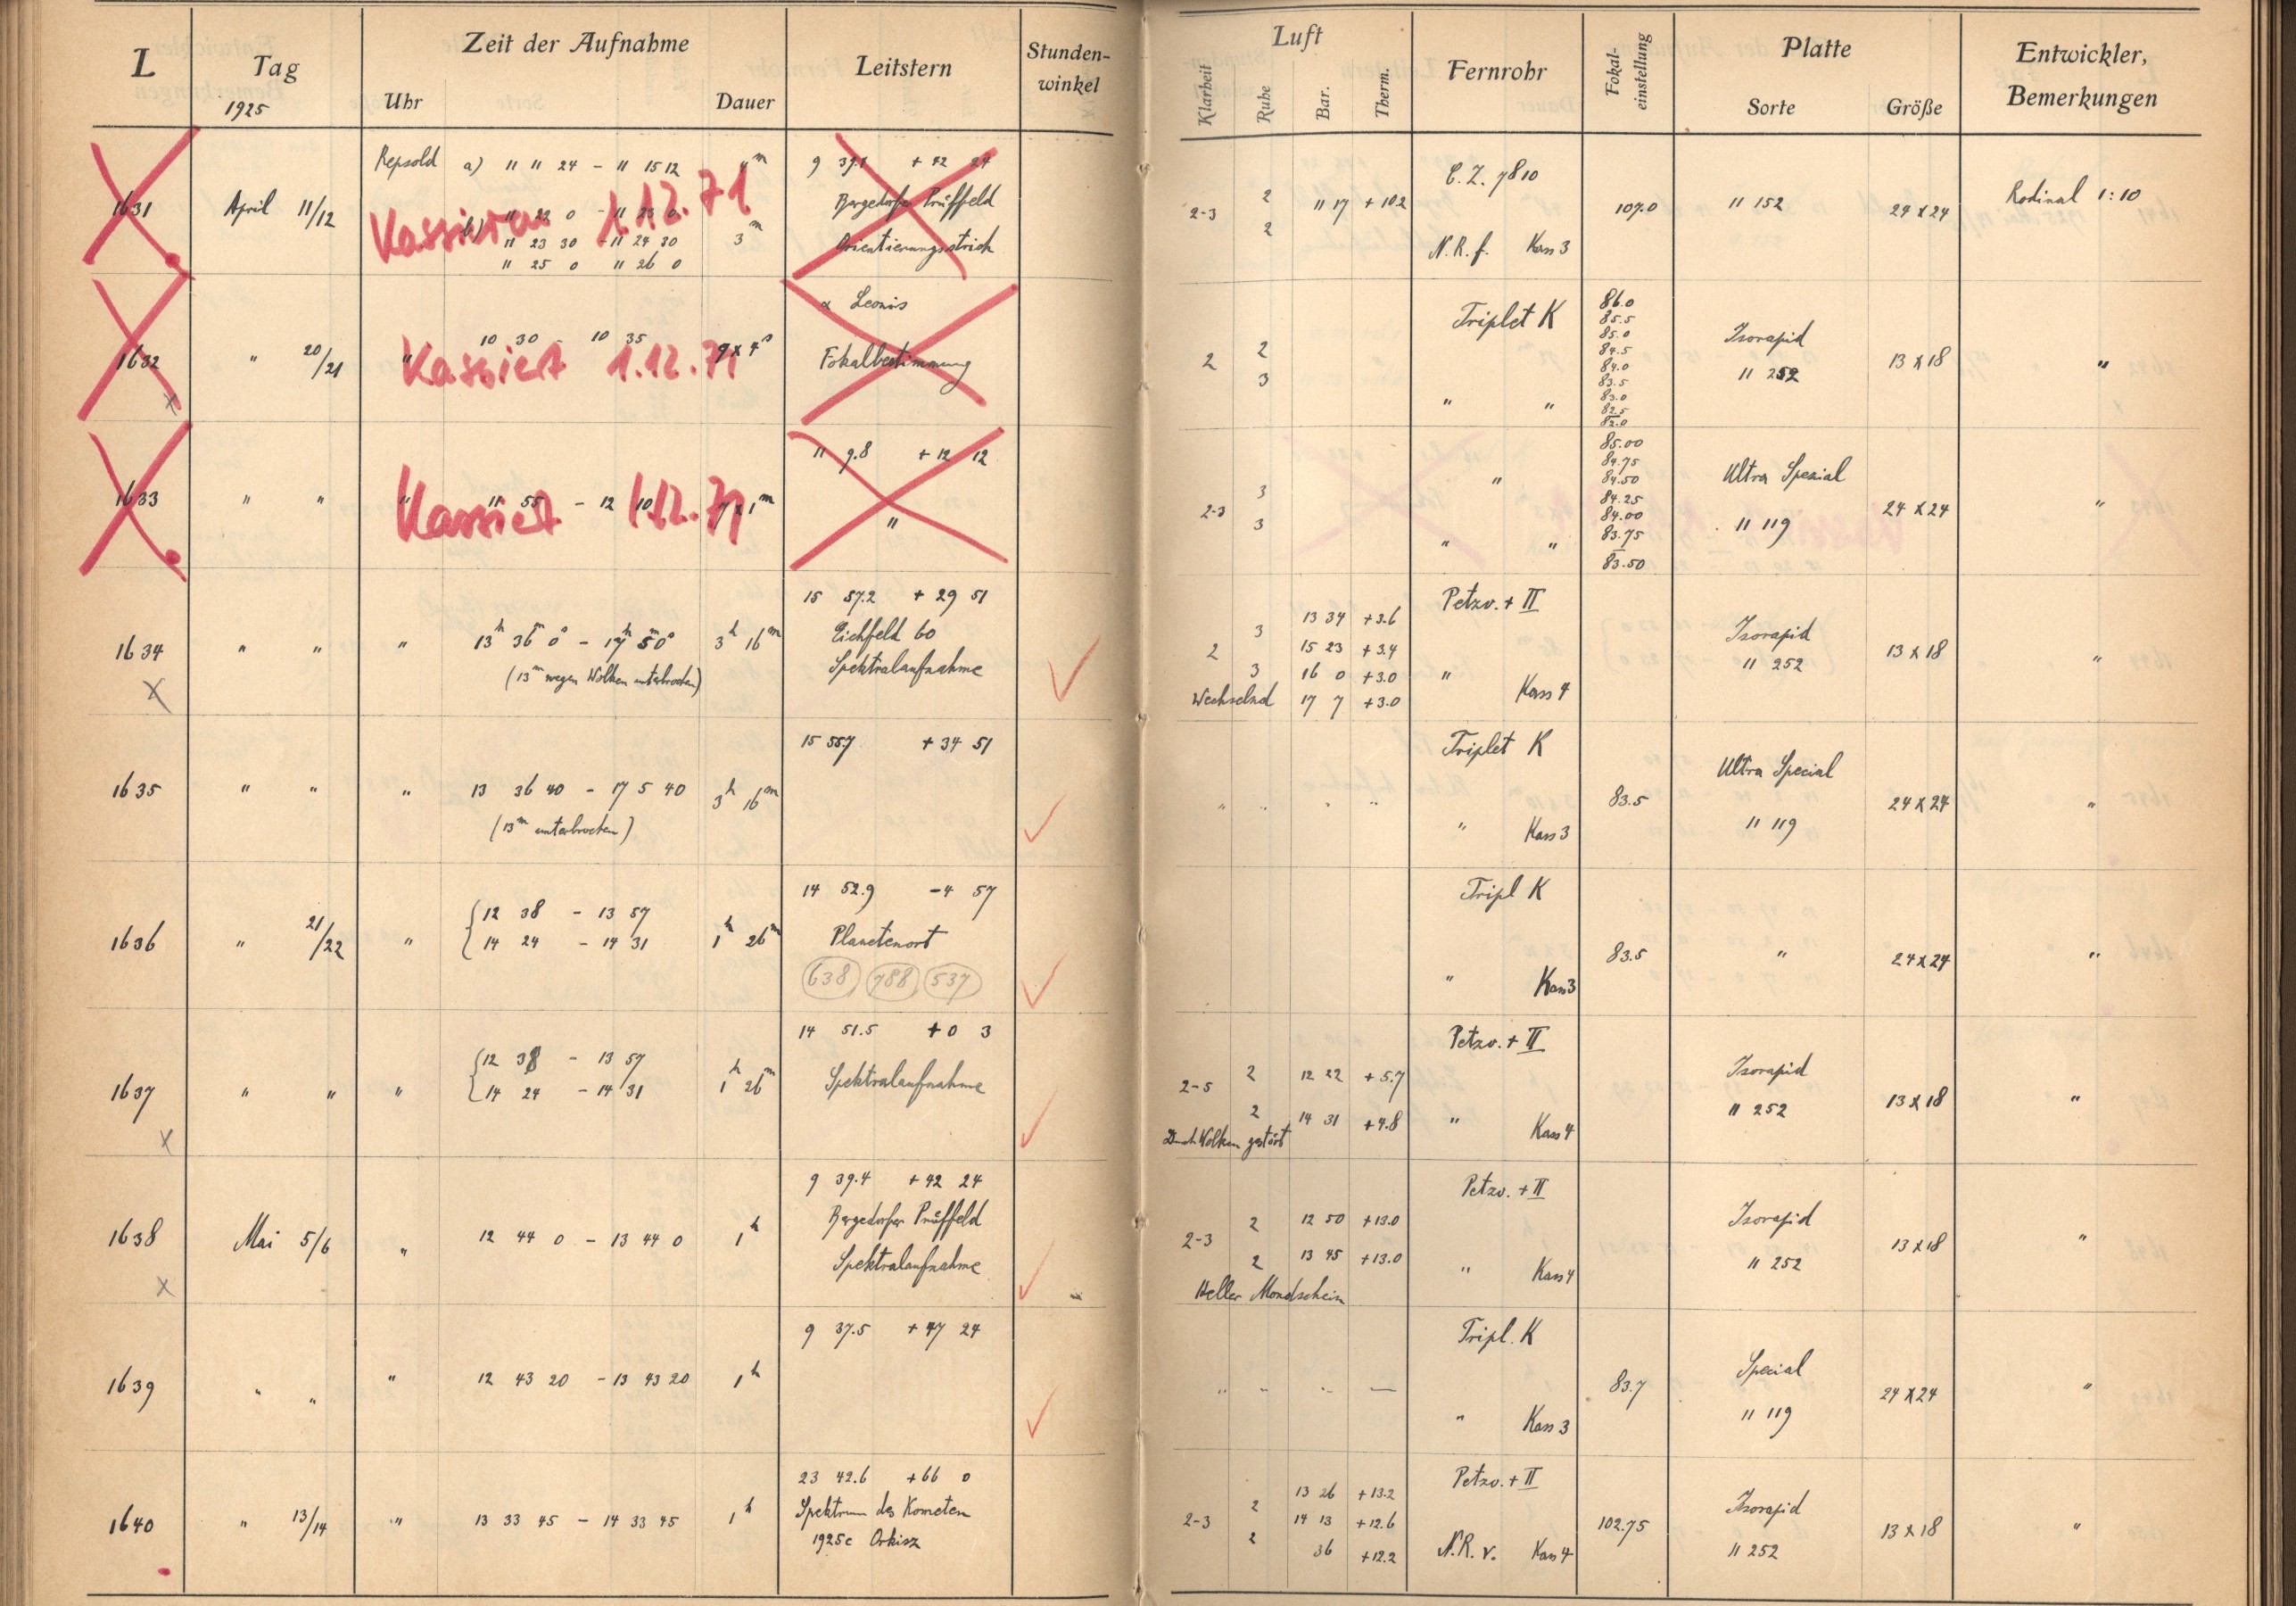 L
Tag
1925
Zeit der Aufnahme
Uhr
Dauer
Leitstern
Stunden-
winkel
Luft
Klarheit
Ruhe
Bar.
Therm.
Fernrohr
Fokal-
einstellung
Platte
Sorte
Größe
Entwickler,
Bemerkungen
1631 April 11/12
Repsold a) 11 11 24 - 11 15 12 4m
b) 11 22 0 - 11 23 0
11 23 30 - 11 24 30 3m
11 25 0 11 26 0
Kassiert 1.12.71
9 39.4 + 42 24
Bergedorfer Prüffeld
Orientierungsstrich
2-3 2 11 17 + 10.2
2
C. Z. 7810
N. R. f. Kass 3
107.0
11 152
24 x 24
Rodinal 1:10
1632 " 20/21 "
10 30 - 10 35 9 x 4s
Kassiert 1.12.71
α Leonis
Fokalbestimmung
2 2
3
Triplet K
" "
86.0
85.5
85.0
84.5
84.0
83.5
83.0
82.5
82.0
Isorapid
11 252
13 x 18
"
1633 " " "
11 55 - 12 10 7 x 1m
Kassiert 1.12.71
11 9.8 + 12 12
"
2-3 3
3
"
" "
85.00
84.75
84.50
84.25
84.00
83.75
83.50
Ultra Spezial
11 119
24 x 24
"
1634 " " "
x
13h 36m 0s - 17h 5m 0s 3h 16m
(13m wegen Wolken unterbrochen)
15 57.2 + 29 51
Eichfeld 60
Spektralaufnahme
2 3
3
Wechselnd
13 34 +3.6
15 23 +3.4
16 0 +3.0
17 7 +3.0
Petzv. + II
" Kass 4
Isorapid
11 252
13 x 18
"
1635 " " "
13 36 40 - 17 5 40 3h 16m
(13m unterbrochen)
15 55.7 + 34 51
" " " "
Triplet K
" Kass 3
83.5
Ultra Special
11 119
24 x 24
"
1636 " 21/22 "
12 38 - 13 57
14 24 - 14 31 1h 26m
14 52.9 -4 57
Planetenort
638 788 537
Tripl K
" Kass 3
83.5
"
24 x 24
"
1637 " " "
x
12 38 - 13 57
14 24 - 14 31 1h 26m
14 51.5 +0 3
Spektralaufnahme
2-5 2 12 22 + 5.7
2 14 31 +4.8
Durch Wolken gestört
Petzv. + II
" Kass 4
Isorapid
11 252
13 x 18
"
1638 Mai 5/6 "
x
12 44 0 - 13 44 0 1h
9 39.4 + 42 24
Bergedorfer Prüffeld
Spektralaufnahme
2-3 2 12 50 +13.0
2 13 45 +13.0
Heller Mondschein
Petzv. + II
" Kass 4
Isorapid
11 252
13 x 18
"
1639 " " "
12 43 20 - 13 43 20 1h
9 37.5 + 47 24
" " " —
Tripl. K
" Kass 3
83.7
Special
11 119
24 x 24
"
1640 " 13/14 "
13 33 45 - 14 33 45 1h
23 42.6 +66 0
Spektrum des Kometen
1925c Orkisz
2-3 2 13 26 +13.2
14 13 +12.6
2 36 +12.2
Petzv. + II
N.R. v. Kass 4
102.75
Isorapid
11 252
13 x 18
"